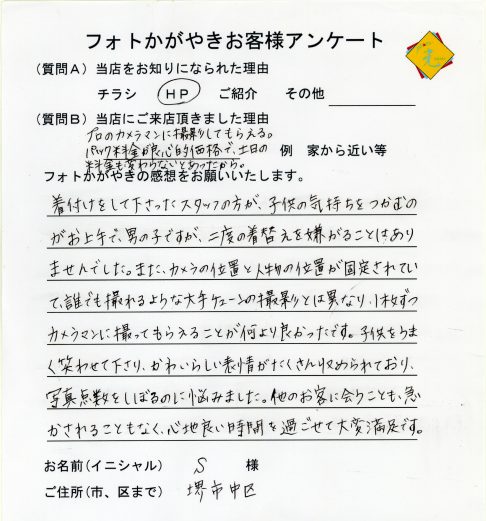 フォトかがやきお客様アンケート
(質問A)当店をお知りになられた理由
チラシ HP ご紹介 その他
(質問B)当店にご来店頂きました理由
プロのカメラマンに撮影してもらえる。
パック料金が良心的価格で、土日の
料金も変わらないとあったから。
例 家から近い等
フォトかがやきの感想をお願いいたします。
着付けをして下さったスタッフの方が、子供の気持ちをつかむの
がお上手で、男の子ですが、二度の着替えを嫌がることはあり
ませんでした。また、カメラの位置と人物の位置が固定されてい
て、誰でも撮れるような大手チェーンの撮影とは異なり、1枚ずつ
カメラマンに撮ってもらえることが何より良かったです。子供をうま
く笑わせて下さり、かわいらしい表情がたくさん収められており、
写真点数をしぼるのに悩みました。他のお客に会うことも、急
かされることもなく、心地良い時間を過ごせて大変満足です。
お名前(イニシャル) S 様
ご住所(市、区まで) 堺市中区